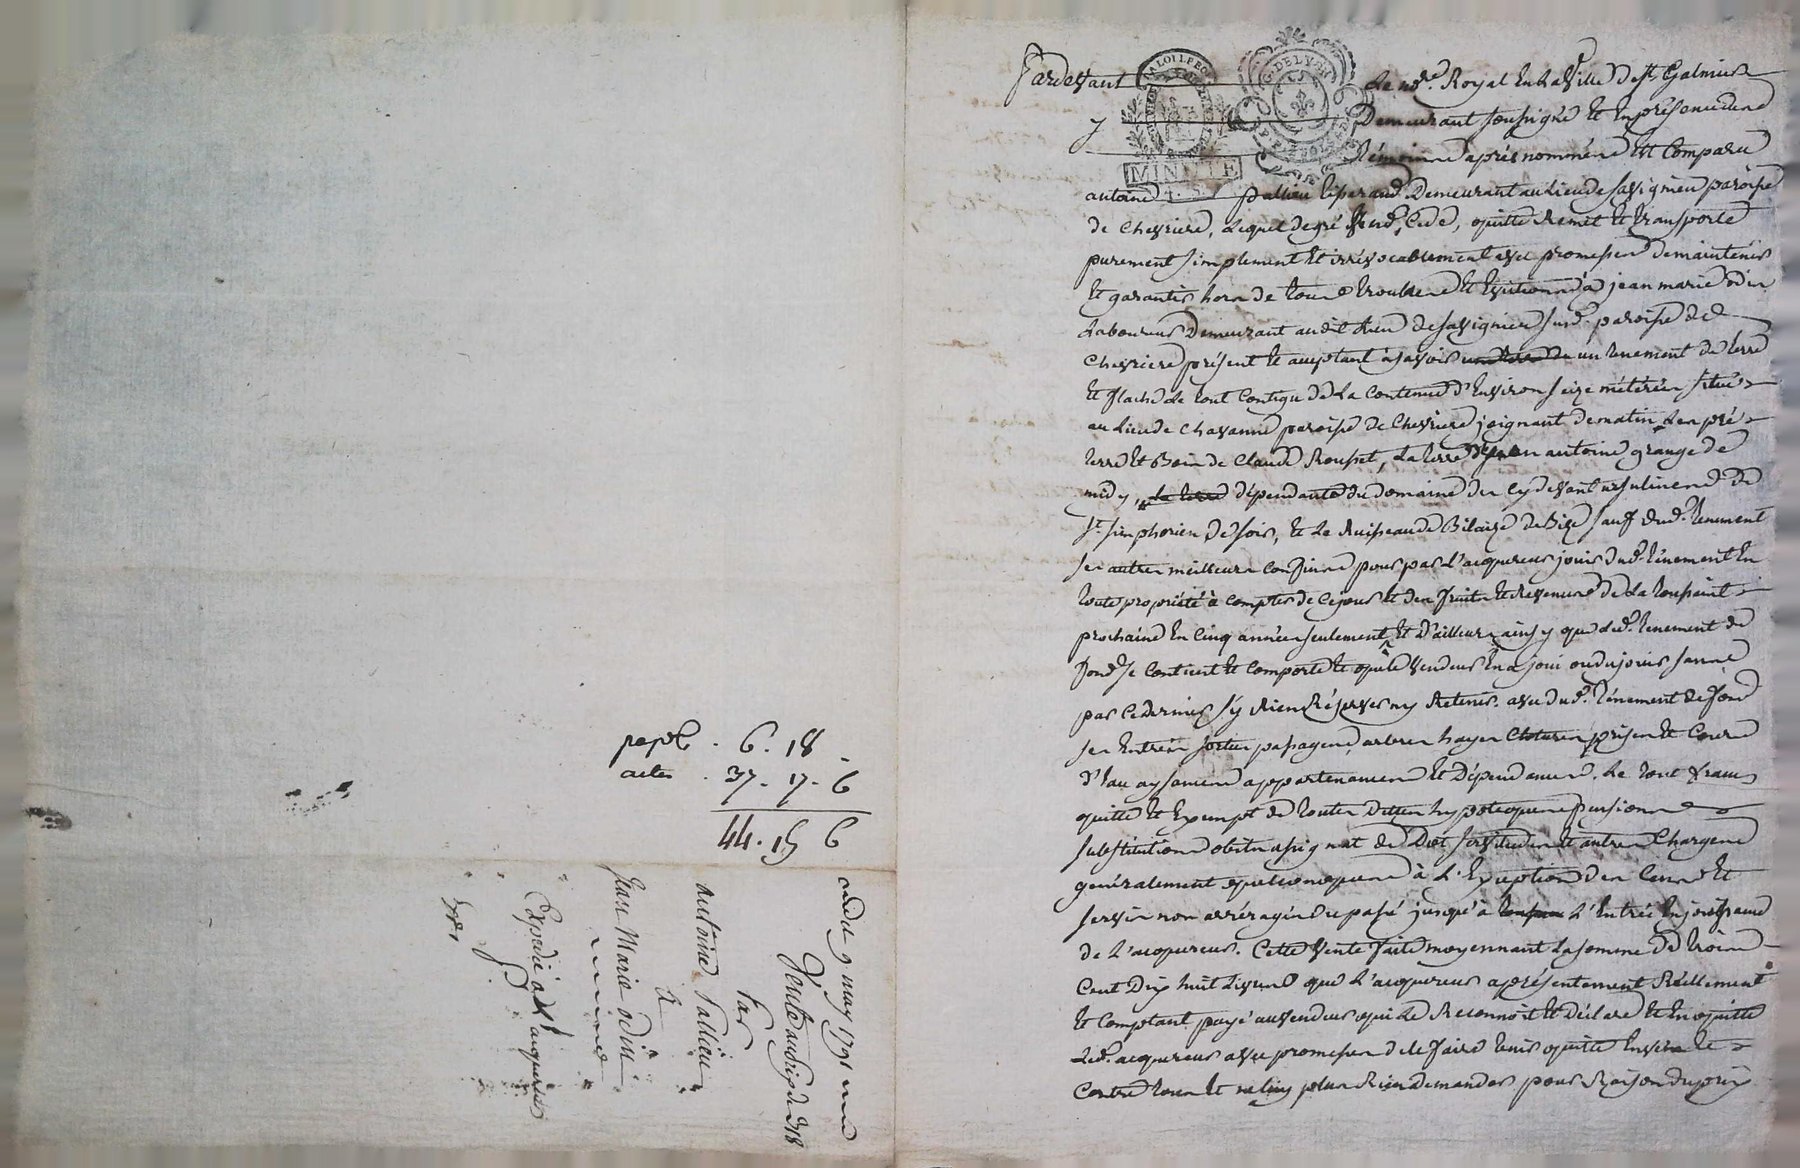 papr . 6 . 18 .
actes . 37 . 17 . 6
44 . 15 6
du 9 may 1791
Vente au prix de 318
Par
Antoine Pallieu
à
Jean Marie odin
Expédié à l'acquereur
Pardevant Le nore. Royal En la Ville De St. Galmier
y Demeurant soussigné Et En présence des
Témoins après nommés Est Comparu
antoine pallieu tisserand Demeurant au lieu de savignieu paroisse
de Chevrieres, Lequel de gré Vend, Cede, quitte Remet Et transporte
purement simplement Et irrévocablement avec promesses de maintenir
Et garantir hors de tous troubles Et Evictions à jean marie odin
Laboureur Demeurant audit Lieu de savignieu susd. paroisse de
Chevrieres présent Et acceptant à savoir un tenement de terre
Et flache Le tout Contigu de La Contenue d'Environ seize métérées situé
au Lieu de Chavanne paroisse de Chevrieres joignant de matin Les pré
terre Et Bois de Claude Rousset, La terre antoine grange de
midy, dépendante du domaine des Cy devant ursulines de
St. simphorien de soir, Et Le Ruisseau de Bilaize de Bize sauf dud. tenement
ses autres meilleurs Confins pour par L'acquereur jouir dud. tènement En
toute propriété à Compter de Ce jour Et des fruits Et Revenus de La toussaint
prochaine En Cinq années seulement Et D'ailleurs ainsy que Led. tenement de
fond se Contient Et Comporte Et que le Vendeur En a joui ou du jouir sans
par Ce dernier s'y Rien Réserver ny Retenir. avec dud. tènement de fond
ses Entrées sorties passages, arbres hayes Clotures prises Et Cours
D'Eau aysances appartenances Et Dépendances. Le tout franc
quitte Et Exempt de toutes Dettes hypoteques pensions
substitutions obits assignat de Dot servitudes Et autres Charges
généralement quelconques à L'Exception des Cens Et
servis non arréragés du passé jusqu'à L'Entrée En jouissance
de L'acquereur. Cette Vente faite moyennant La somme de trois
Cent Dix huit Livres que L'acquereur a présentement Réellement
Et Comptant payé au Vendeur qui Le Reconnoit Et Déclare Et En quitte
Led. acquereur avec promesses de Le faire tenir quitte Envers Et
Contre tous Et ne luy plus Rien demander pour Raison du prix